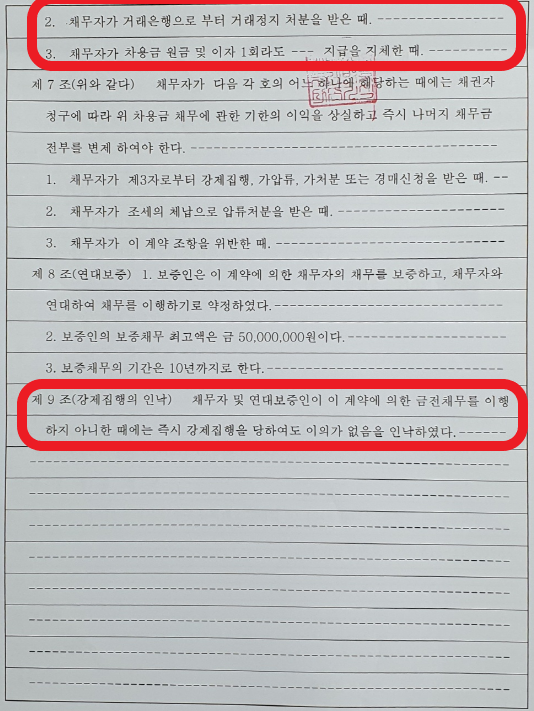 2. 채무자가 거래은행으로 부터 거래정지 처분을 받은 때. ----------------
3. 채무자가 차용금 원금 및 이자 1회라도 --- 지급을 지체한 때. ----------
제 7 조(위와 같다) 채무자가 다음 각 호의 어느 하나에 해당하는 때에는 채권자
청구에 따라 위 차용금 채무에 관한 기한의 이익을 상실하고 즉시 나머지 채무금
전부를 변제 하여야 한다. ---------------------------------------
1. 채무자가 제3자로부터 강제집행, 가압류, 가처분 또는 경매신청을 받은 때. --
2. 채무자가 조세의 체납으로 압류처분을 받은 때. ---------------------
3. 채무자가 이 계약 조항을 위반한 때. -----------------------------
제 8 조(연대보증) 1. 보증인은 이 계약에 의한 채무자의 채무를 보증하고, 채무자와
연대하여 채무를 이행하기로 약정하였다.-----------------------------
2. 보증인의 보증채무 최고액은 금 50,000,000원이다.--------------------
3. 보증채무의 기간은 10년까지로 한다.------------------------------
제 9 조(강제집행의 인낙) 채무자 및 연대보증인이 이 계약에 의한 금전채무를 이행
하지 아니한 때에는 즉시 강제집행을 당하여도 이의가 없음을 인낙하였다.-------